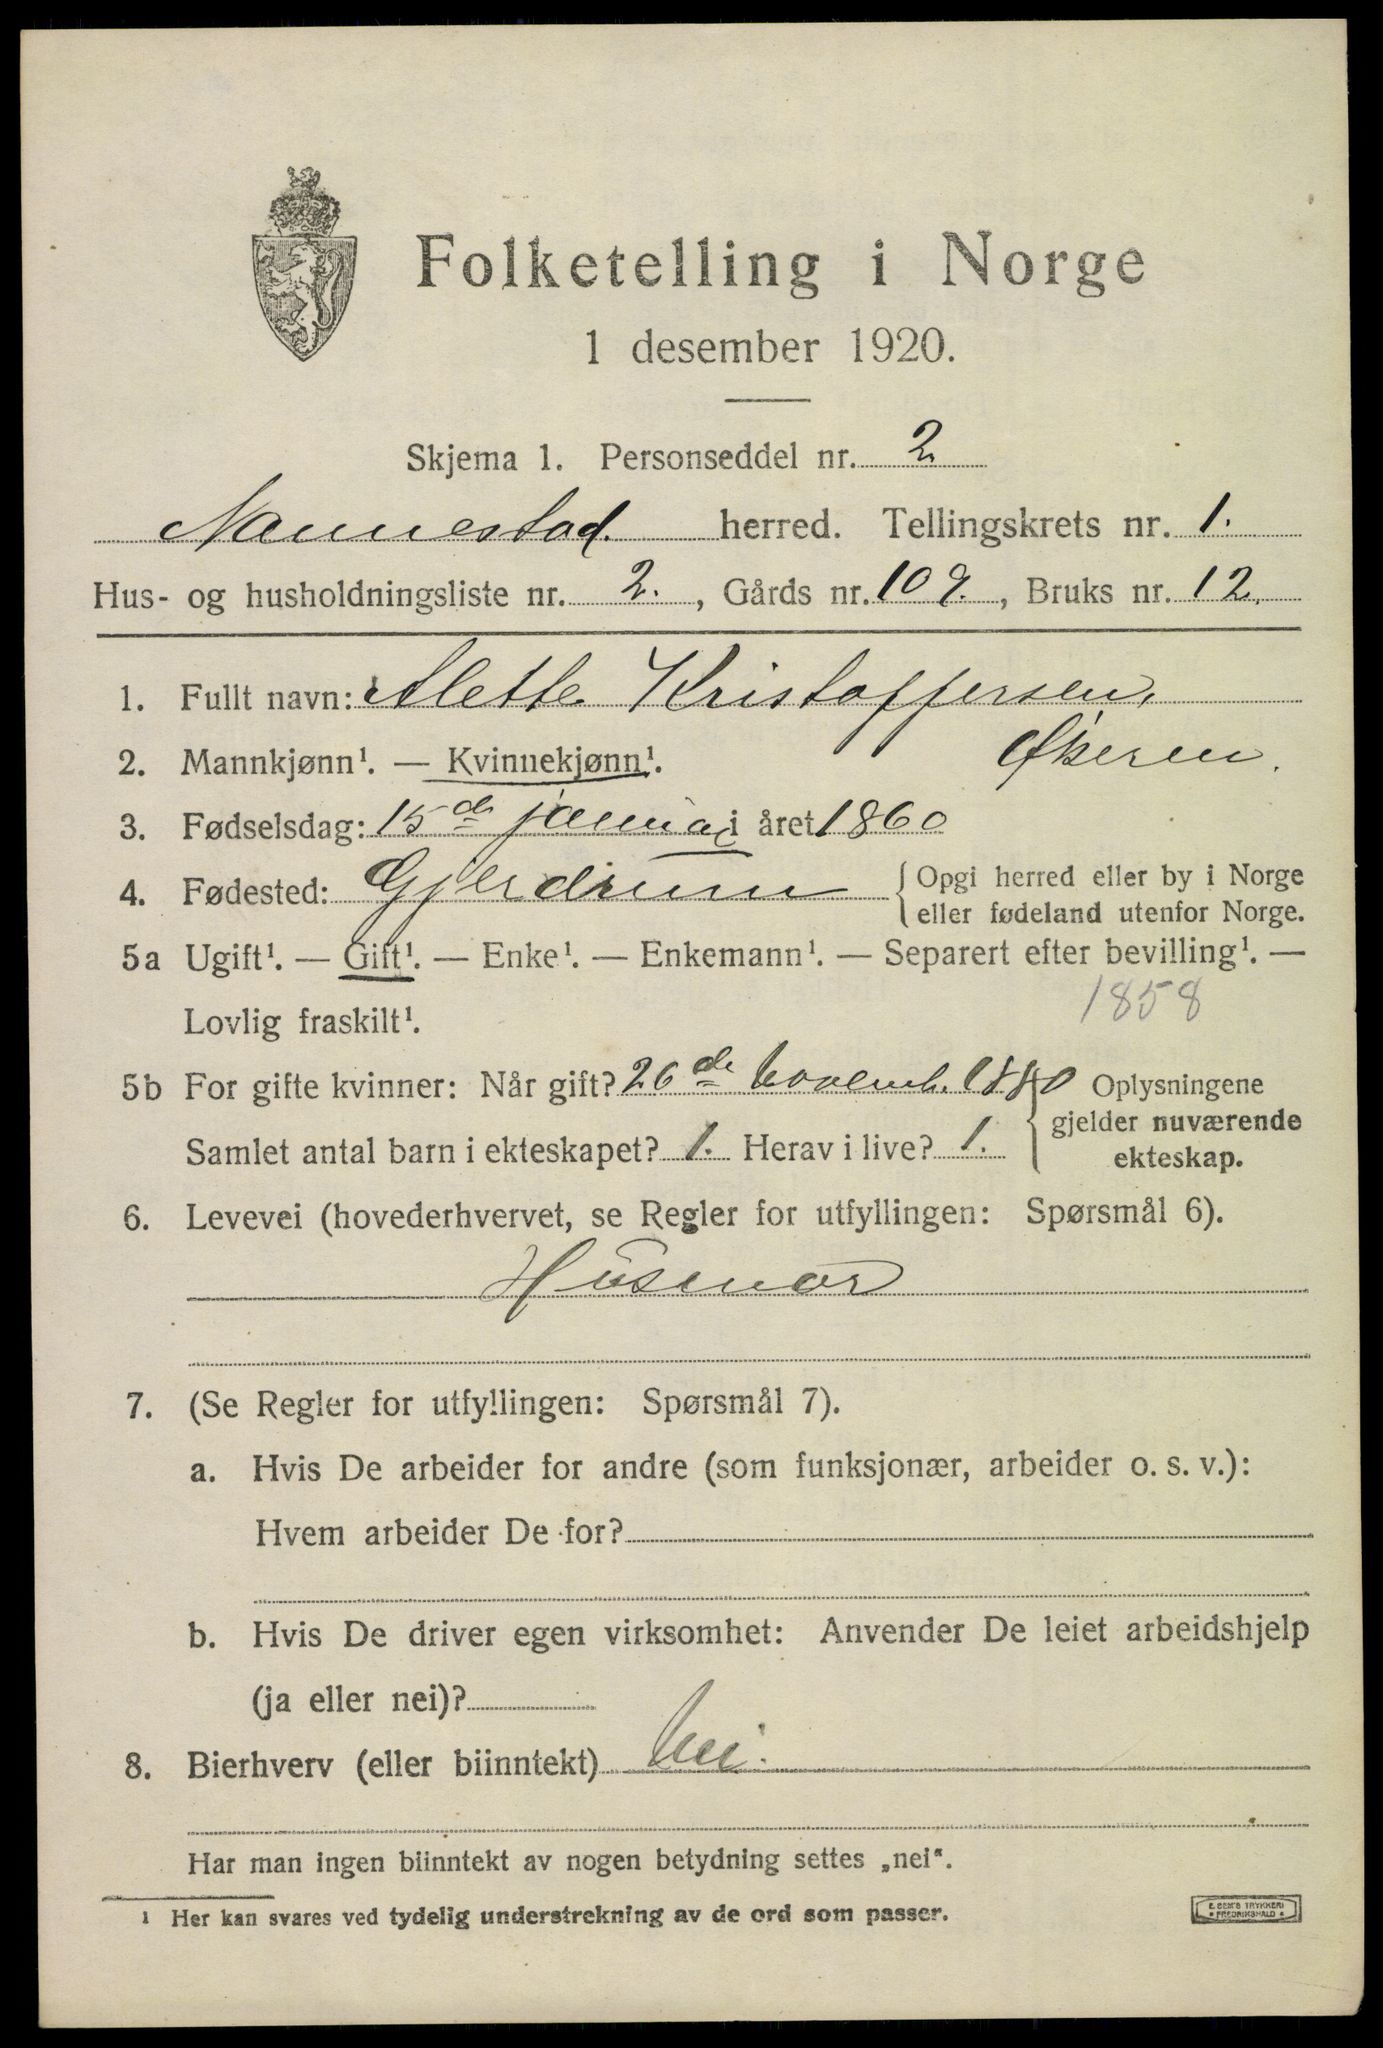 Folketelling i Norge
1 desember 1920.
Skjema 1. Personseddel nr. 2
Nannestad. herred. Tellingskrets nr. 1.
Hus- og husholdningsliste nr. 2. , Gårds nr. 109. , Bruks nr. 12.
1. Fullt navn: Alette Kristoffersen,
Økeren.
2. Mannkjønn¹. — Kvinnekjønn¹.
3. Fødselsdag: 15de januar i året 1860
4. Fødested: Gjerdrum { Opgi herred eller by i Norge
eller fødeland utenfor Norge.
5a Ugift¹. — Gift¹. — Enke¹. — Enkemann¹. — Separert efter bevilling¹. —
1858
Lovlig fraskilt¹.
5b For gifte kvinner: Når gift? 26de Novemb. 1880 { Oplysningene
gjelder nuværende
Samlet antal barn i ekteskapet? 1. Herav i live? 1.
ekteskap.
6. Levevei (hovederhvervet, se Regler for utfyllingen: Spørsmål 6).
Husmor
7. (Se Regler for utfyllingen: Spørsmål 7).
a. Hvis De arbeider for andre (som funksjonær, arbeider o. s. v.):
Hvem arbeider De for?
b. Hvis De driver egen virksomhet: Anvender De leiet arbeidshjelp
(ja eller nei)?
8. Bierhverv (eller biinntekt) Nei.
Har man ingen biinntekt av nogen betydning settes „nei“.
1 Her kan svares ved tydelig understrekning av de ord som passer.
E. SEM'S TRYKKERI
FREDRIKSHALD